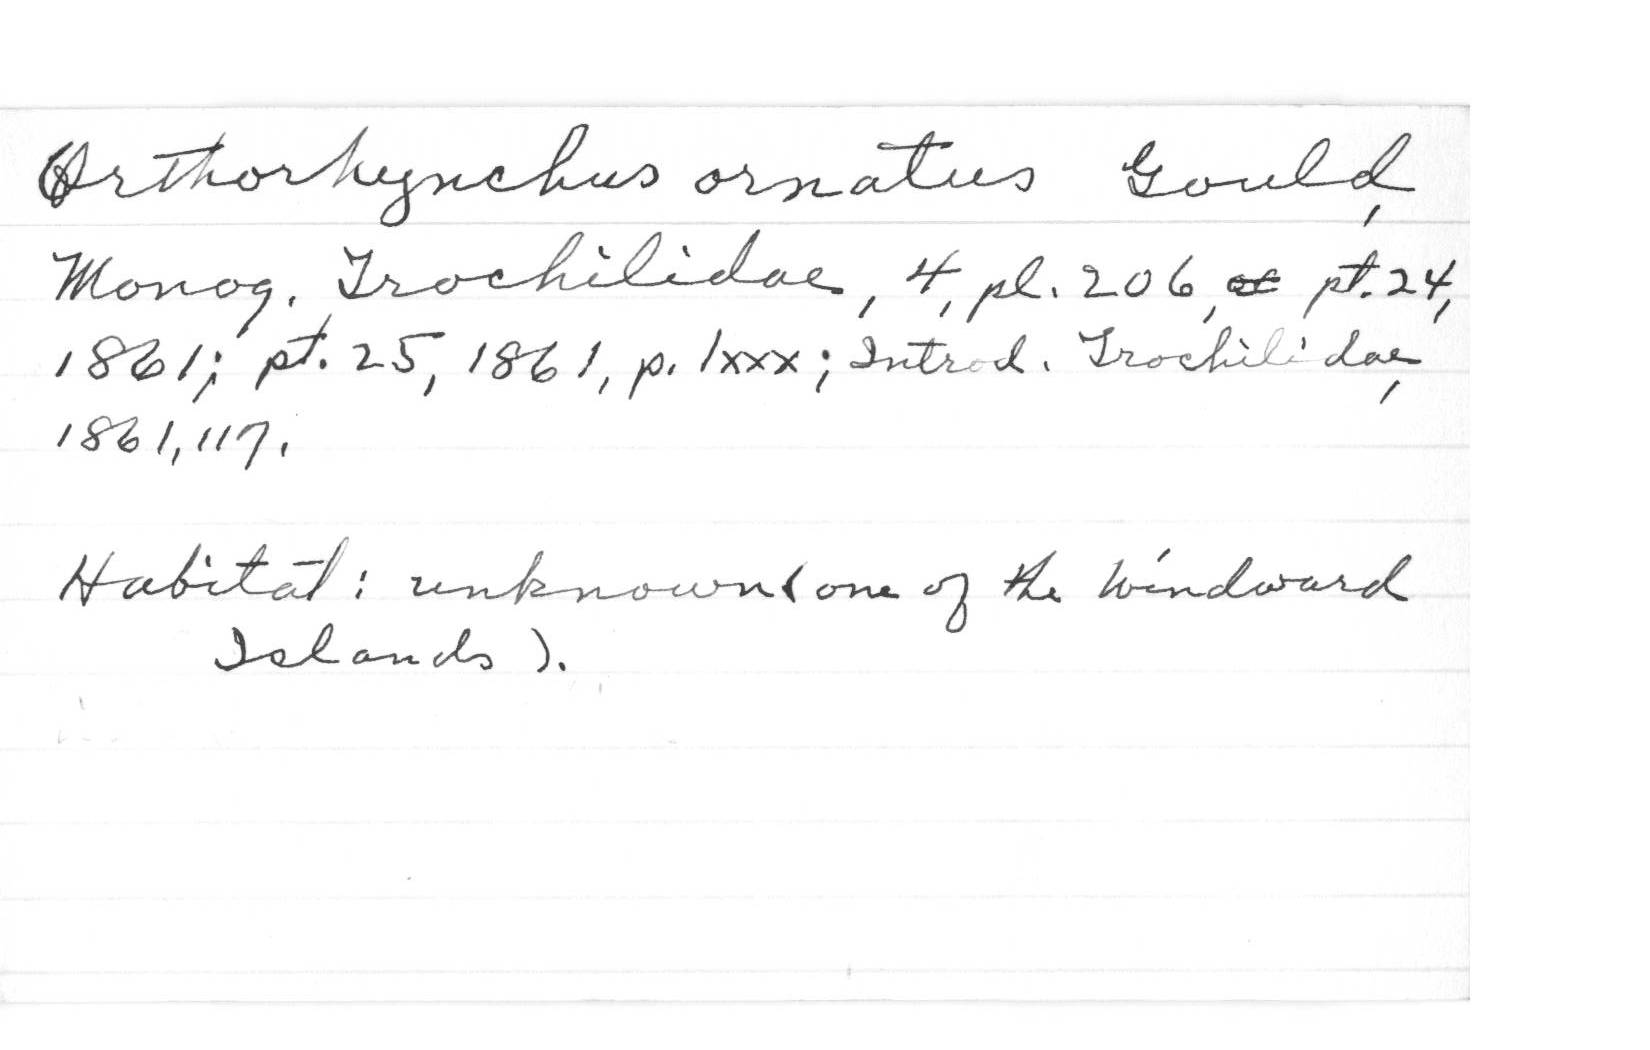 Orthorhynchus ornatus Gould,
Monog. Trochilidae, 4, pl. 206, pt. 24,
1861; pt. 25, 1861, p. lxxx; Introd. Trochilidae,
1861, 117.
Habitat: unknown (one of the Windward
Islands).